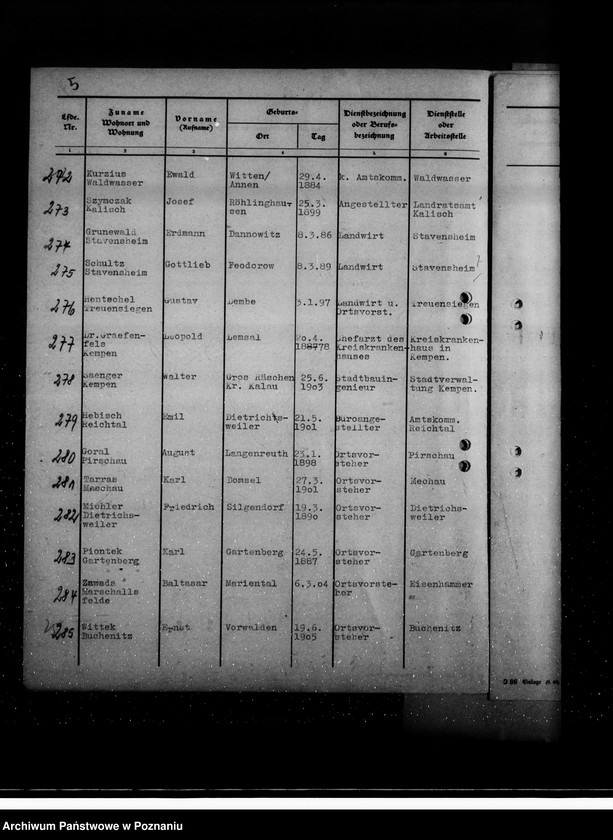 5
Lfde. Nr. | Zuname Wohnort und Wohnung | Vorname (Rufname) | Geburts- Ort | Tag | Dienstbezeichnung oder Berufsbezeichnung | Dienststelle oder Arbeitsstelle
1 2 3 4 5 6
272 Kurzius Ewald Witten/ 29.4. k. Amtskomm. Waldwasser
Waldwasser Annen 1884
273 Szymczak Josef Röhlinghau- 25.3. Angestellter Landratsamt
Kalisch sen 1899 Kalisch
274 Grunewald Erdmann Dannowitz 8.3.86 Landwirt Stavensheim
Stavensheim
275 Schultz Gottlieb Feodorow 8.3.89 Landwirt Stavensheim
Stavensheim
276 Hentschel Gustav Dembe 3.1.97 Landwirt u. Treuensiegen
Treuensiegen Ortsvorst.
277 Dr.Graefen- Leopold Lemsal 20.4. Chefarzt des Kreiskranken-
fels 188778 Kreiskranken- haus in
Kempen hauses Kempen.
278 Saenger Walter Gros Räschen 25.6. Stadtbauin- Stadtverwal-
Kempen Kr. Kalau 1903 genieur tung Kempen.
279 Hebisch Emil Dietrichs- 21.5. Büroange- Amtskomm.
Reichtal weiler 1901 stellter Reichtal
280 Goral August Langenreuth 23.1. Ortsvor- Pirschau
Pirschau 1898 steher
281 Tarras Karl Domsel 27.3. Ortsvor- Mechau
Maschau 1901 steher
282 Michler Friedrich Silgendorf 19.3. Ortsvor- Dietrichs-
Dietrichs- 1890 steher weiler
weiler
283 Piontek Karl Gartenberg 24.5. Ortsvor- Gartenberg
Gartenberg 1887 steher
284 Zawada Baltasar Mariental 6.3.04 Ortsvorste- Eisenhammer
Marschalls her
felde
285 Wittek Ernst Vorwalden 19.6. Ortsvor- Buchenitz
Buchenitz 1905 steher
Archiwum Państwowe w Poznaniu